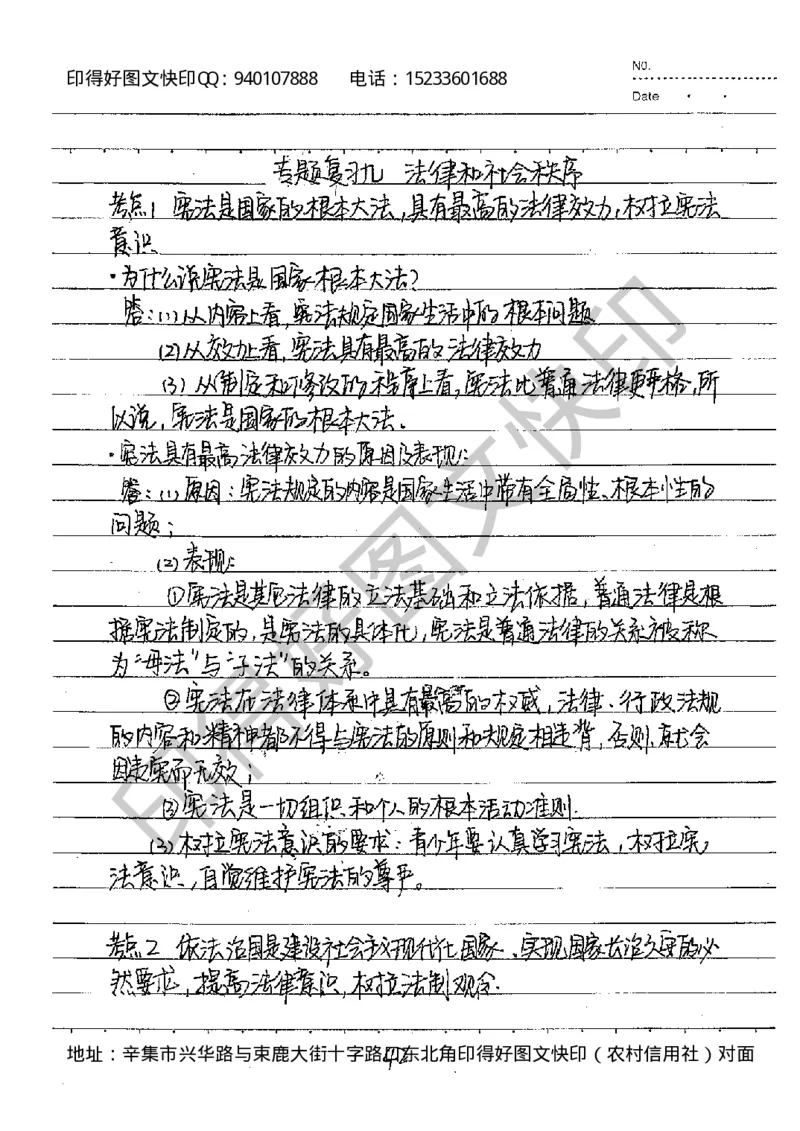 印得好图文快印QQ：940107888 电话：15233601688
No.
Date
专题复习九 法律和社会秩序
考点1 宪法是国家的根本大法，具有最高的法律效力，树立宪法
意识
·为什么说宪法是国家根本大法？
答：(1)从内容上看，宪法规定国家生活中的根本问题
(2)从效力上看，宪法具有最高的法律效力
(3)从制定和修改的程序上看，宪法比普通法律更严格，所
以说，宪法是国家的根本大法。
·宪法具有最高法律效力的原因及表现：
答：(1)原因：宪法规定的内容是国家生活中带有全局性、根本性的
问题；
(2)表现：
①宪法是其它法律的立法基础和立法依据，普通法律是根
据宪法制定的，是宪法的具体化，宪法是普通法律的关系被称
为“母法”与“子法”的关系。
②宪法在法律体系中具有最高的权威，法律、行政法规
的内容和精神都不得与宪法的原则和规定相违背，否则，就会
因违宪而无效；
③宪法是一切组织和个人的根本活动准则.
(3)树立宪法意识的要求：青少年要认真学习宪法，树立宪
法意识，自觉维护宪法的尊严。
考点2 依法治国是建设社会主义现代化国家、实现国家长治久安的必
然要求，提高法律意识，树立法制观念.
地址：辛集市兴华路与束鹿大街十字路口东北角印得好图文快印（农村信用社）对面
印得好图文快印